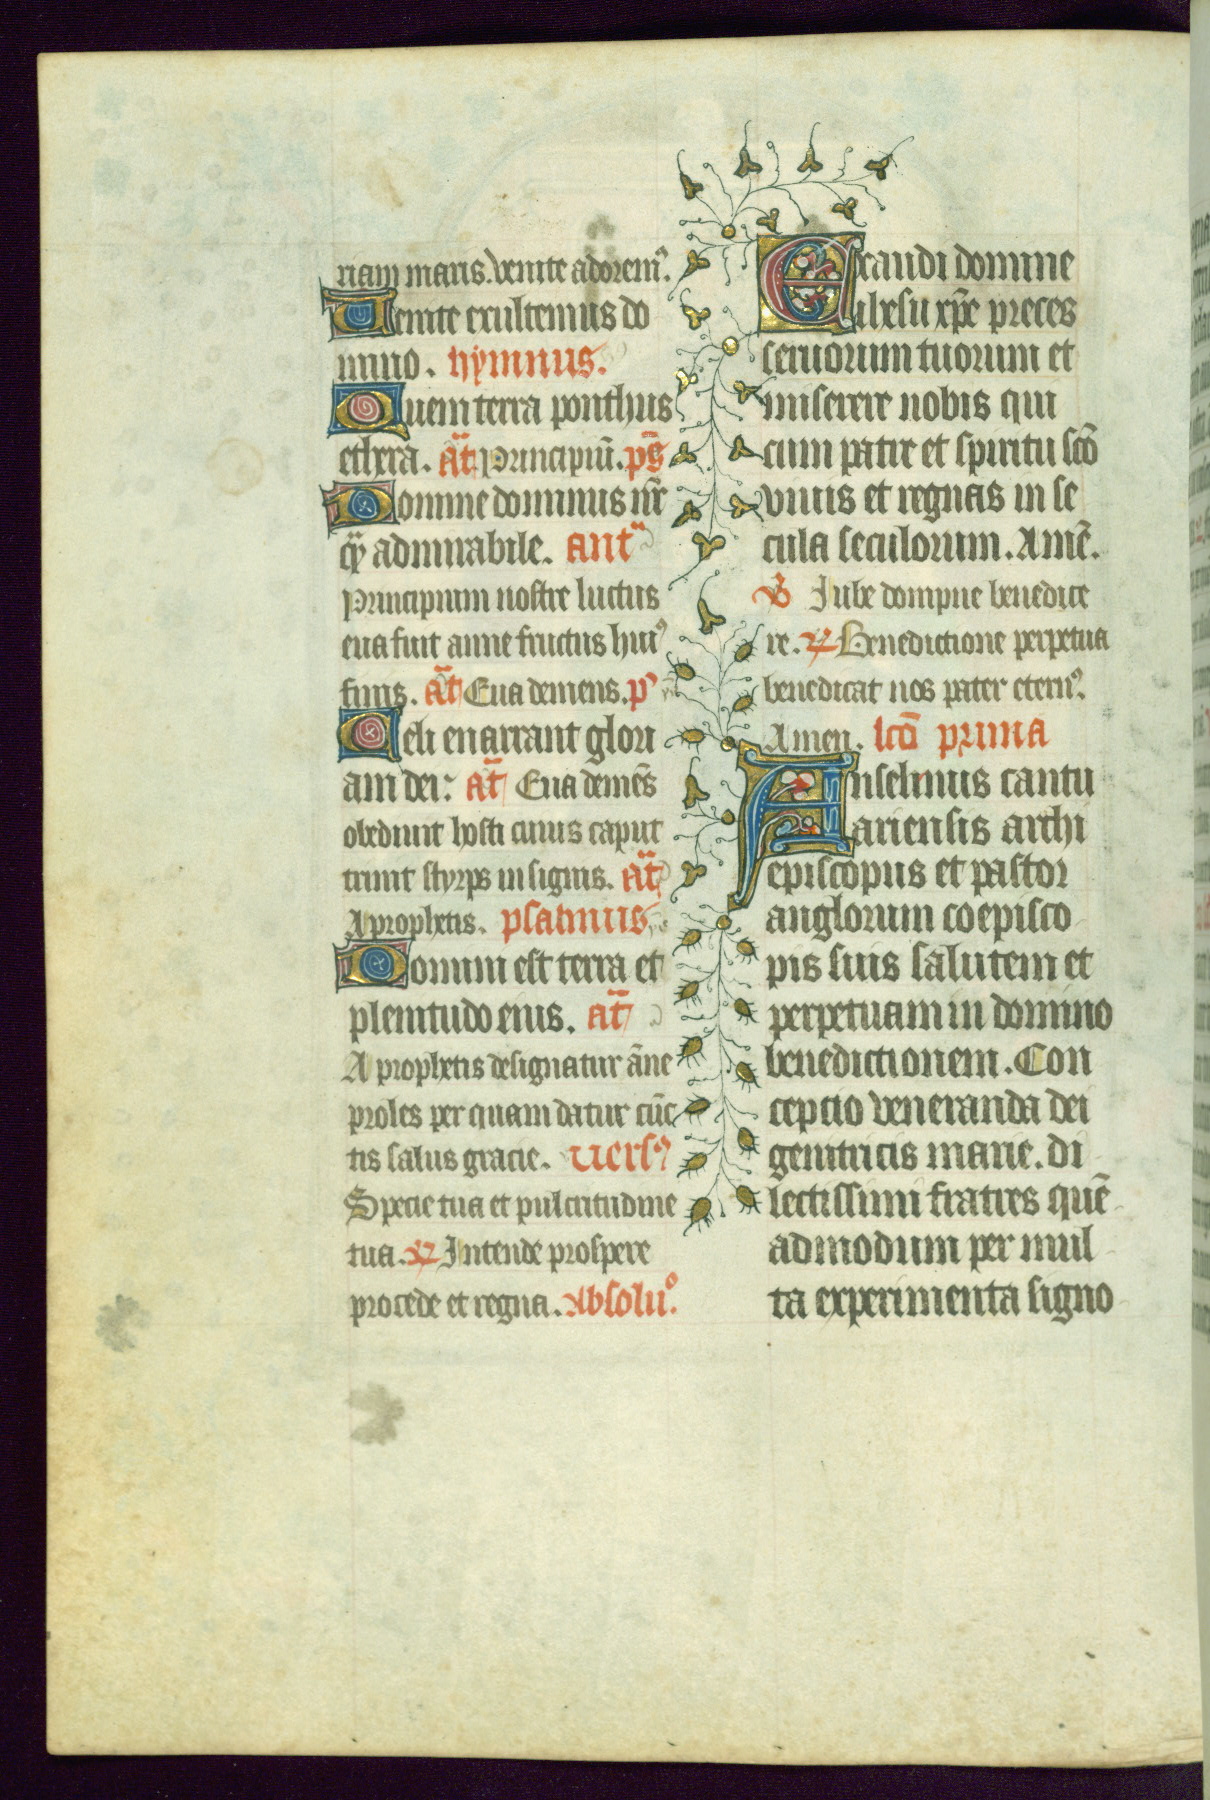 riam maris. venite adorem⁹.
Uenite exultemus do
mino. hymnus.
Quem terra ponthus
ethera. an̄t Principiū. pS̄
Domine dominus nr̄
q̄ admirabile. ant̄
Principium nostre luctus
eua fuit anne fructus hui⁹
funis. at̄ Eua demens. p̄
Celi enarrant glori
am dei: at̄ Eua demēs
obediunt hosti cuius caput
triuit styrps insignis. at̄
A prophetis. psalmus
Domini est terra et
plenitudo eius. at̄
A prophetis designatur āne
proles per quam datur cūc
tis salus gracie. Uers⁹
Specie tua et pulcritudine
tua. ℟ Intende prospere
procede et regna. Absolu⁰.
Exaudi domine
ihesu xp̄e preces
seruorum tuorum et
miserere nobis qui
cum patre et spiritu scō
viuis et regnas in se
cula seculorum. Amē.
℣ Iube dompne benedice
re. ℟ Benedictione perpetua
benedicat nos pater etern⁹.
Amen. lcō prima
Anselmus cantu
ariensis archi
episcopus et pastor
anglorum coepisco
pis suis salutem et
perpetuam in domino
benedictionem. Con
cepcio veneranda dei
genitricis marie. di
lectissimi fratres quē
admodum per mul
ta experimenta signo